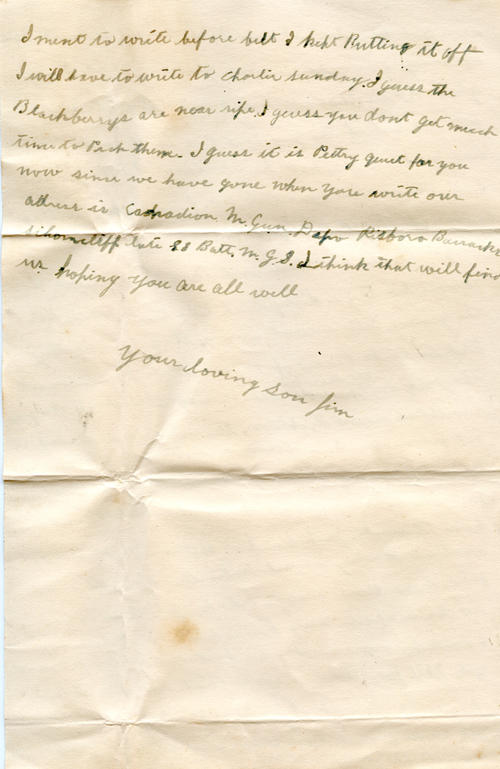 I ment to write before but I kept Putting it off
I will have to write to Charlie sunday. I guess the
Blackberrys are near ripe. I guess you dont get much
time to Pick them. I guess it is Pettry quiet for you
now since we have gone when you write our
adress is Canadion M. Gun. Depo Risboro Barracks
Shorncliff late 88 Batt. M.G.S. I think that will find
us hoping you are all well
Your loving son Jim